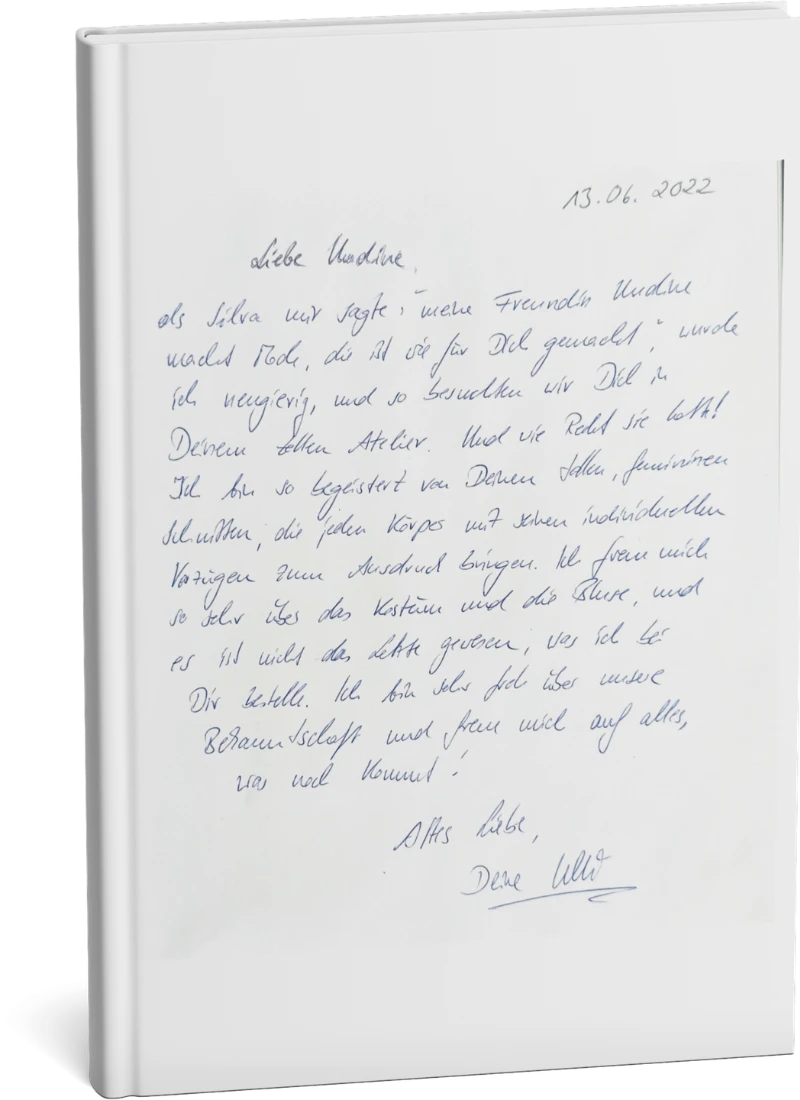 13.06.2022
Liebe Undine,
als Silva mir sagte: "meine Freundin Undine
macht Mode, die ist wie für Dich gemacht", wurde
ich neugierig, und so besuchten wir Dich in
Deinem tollen Atelier. Und wie Recht sie hatte!
Ich bin so begeistert von Deinen tollen, femininen
Schnitten, die jeden Körper mit seinen individuellen
Vorzügen zum Ausdruck bringen. Ich freue mich
so sehr über das Kostüm und die Bluse, und
es ist nicht das Letzte gewesen, was ich bei
Dir bestelle. Ich bin sehr froh über unsere
Bekanntschaft und freue mich auf alles,
was noch kommt!
Alles Liebe,
Deine